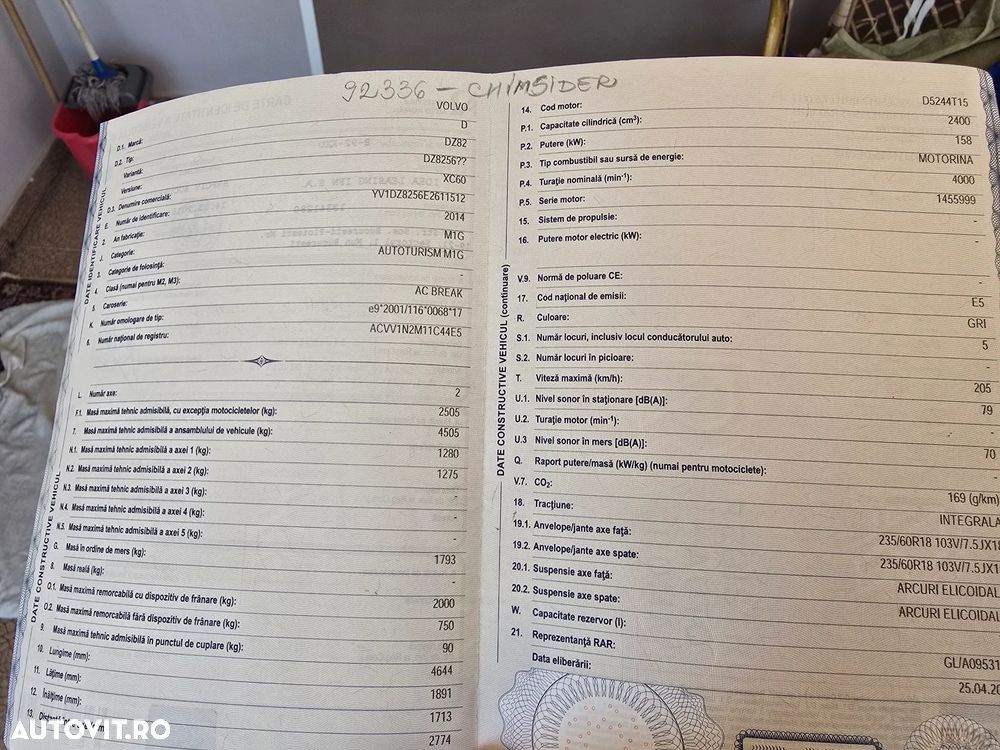 92336 - CHIMSIDER
DATE IDENTIFICARE VEHICUL
D.1. Marcă: VOLVO
D.2. Tip: D
Variantă: DZ82
Versiune: DZ8256??
D.3. Denumire comercială: XC60
E. Număr de identificare: YV1DZ8256E2611512
2. An fabricație: 2014
J. Categorie: M1G
3. Categorie de folosință: AUTOTURISM M1G
4. Clasă (numai pentru M2, M3): -
5. Caroserie: AC BREAK
K. Număr omologare de tip: e9*2001/116*0068*17
6. Număr național de registru: ACVV1N2M11C44E5
DATE CONSTRUCTIVE VEHICUL
L. Număr axe: 2
F.1. Masă maximă tehnic admisibilă, cu excepția motocicletelor (kg): 2505
7. Masă maximă tehnic admisibilă a ansamblului de vehicule (kg): 4505
N.1. Masă maximă tehnic admisibilă a axei 1 (kg): 1280
N.2. Masă maximă tehnic admisibilă a axei 2 (kg): 1275
N.3. Masă maximă tehnic admisibilă a axei 3 (kg): -
N.4. Masă maximă tehnic admisibilă a axei 4 (kg): -
N.5. Masă maximă tehnic admisibilă a axei 5 (kg): -
G. Masă în ordine de mers (kg): 1793
8. Masă reală (kg): -
O.1. Masă maximă remorcabilă cu dispozitiv de frânare (kg): 2000
O.2. Masă maximă remorcabilă fără dispozitiv de frânare (kg): 750
9. Masă maximă tehnic admisibilă în punctul de cuplare (kg): 90
10. Lungime (mm): 4644
11. Lățime (mm): 1891
12. Înălțime (mm): 1713
13. 2774
DATE CONSTRUCTIVE VEHICUL (continuare)
14. Cod motor: D5244T15
P.1. Capacitate cilindrică (cm³): 2400
P.2. Putere (kW): 158
P.3. Tip combustibil sau sursă de energie: MOTORINA
P.4. Turație nominală (min⁻¹): 4000
P.5. Serie motor: 1455999
15. Sistem de propulsie: -
16. Putere motor electric (kW): -
V.9. Normă de poluare CE: -
17. Cod național de emisii: E5
R. Culoare: GRI
S.1. Număr locuri, inclusiv locul conducătorului auto: 5
S.2. Număr locuri în picioare: -
T. Viteză maximă (km/h): 205
U.1. Nivel sonor în staționare [dB(A)]: 79
U.2. Turație motor (min⁻¹): -
U.3 Nivel sonor în mers [dB(A)]: 70
Q. Raport putere/masă (kW/kg) (numai pentru motociclete): -
V.7. CO₂: 169 (g/km)
18. Tracțiune: INTEGRALA
19.1. Anvelope/jante axe față: 235/60R18 103V/7.5JX18
19.2. Anvelope/jante axe spate: 235/60R18 103V/7.5JX18
20.1. Suspensie axe față: ARCURI ELICOIDAL
20.2. Suspensie axe spate: ARCURI ELICOIDAL
W. Capacitate rezervor (l):
21. Reprezentanță RAR: GL/A09531
Data eliberării: 25.04.20
AUTOVIT.RO